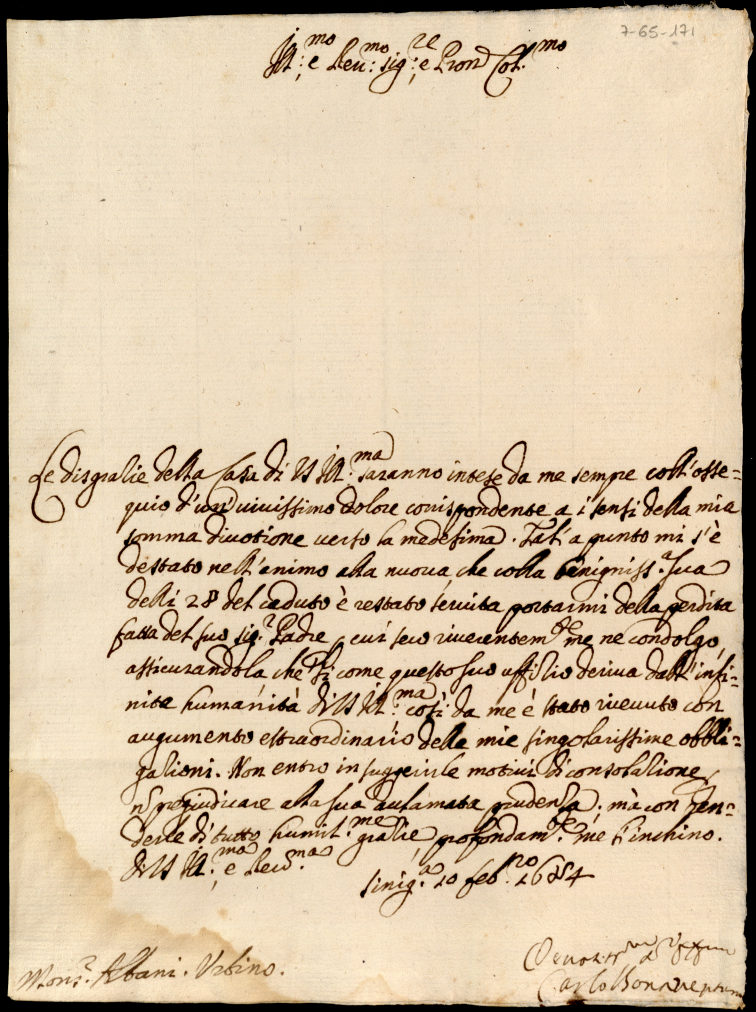 7-65-171
Ill:mo e Reu:mo Sig:re e Pron Col:mo
Le disgratie della Casa di VS Ill:ma saranno intese da me sempre coll'osse=
quio d'un viuissimo dolore corrispondente a i sensi della mia
somma diuotione uerso la medesima. Tal'a punto mi s'è
destato nell'animo alla nuoua che colla benigniss:a sua
delli 28 del caduto è restato seruita portarmi della perdita
fatta del suo Sig:r Padre, cui seco riuerentem:te me ne condolgo,
assicurandola che si come questo suo uffitio deriua dall'infi=
nita humanità di VS Ill:ma così da me è stato riceuuto con
augumento estraordinario delle mie singolarissime obbli=
gationi. Non entro in suggerirle motiui di consolatione,
pregiudicare alla sua acclamata prudenza; mà con ren=
derle di tutto humil:me gratie profondam:te me l'inchino.
di VS Ill:ma e Reu:ma
Sinig:a 20 feb:ro 1684
Mons:r Albani. Urbino.
Deuotiss:mo
Carlo Bonauentura